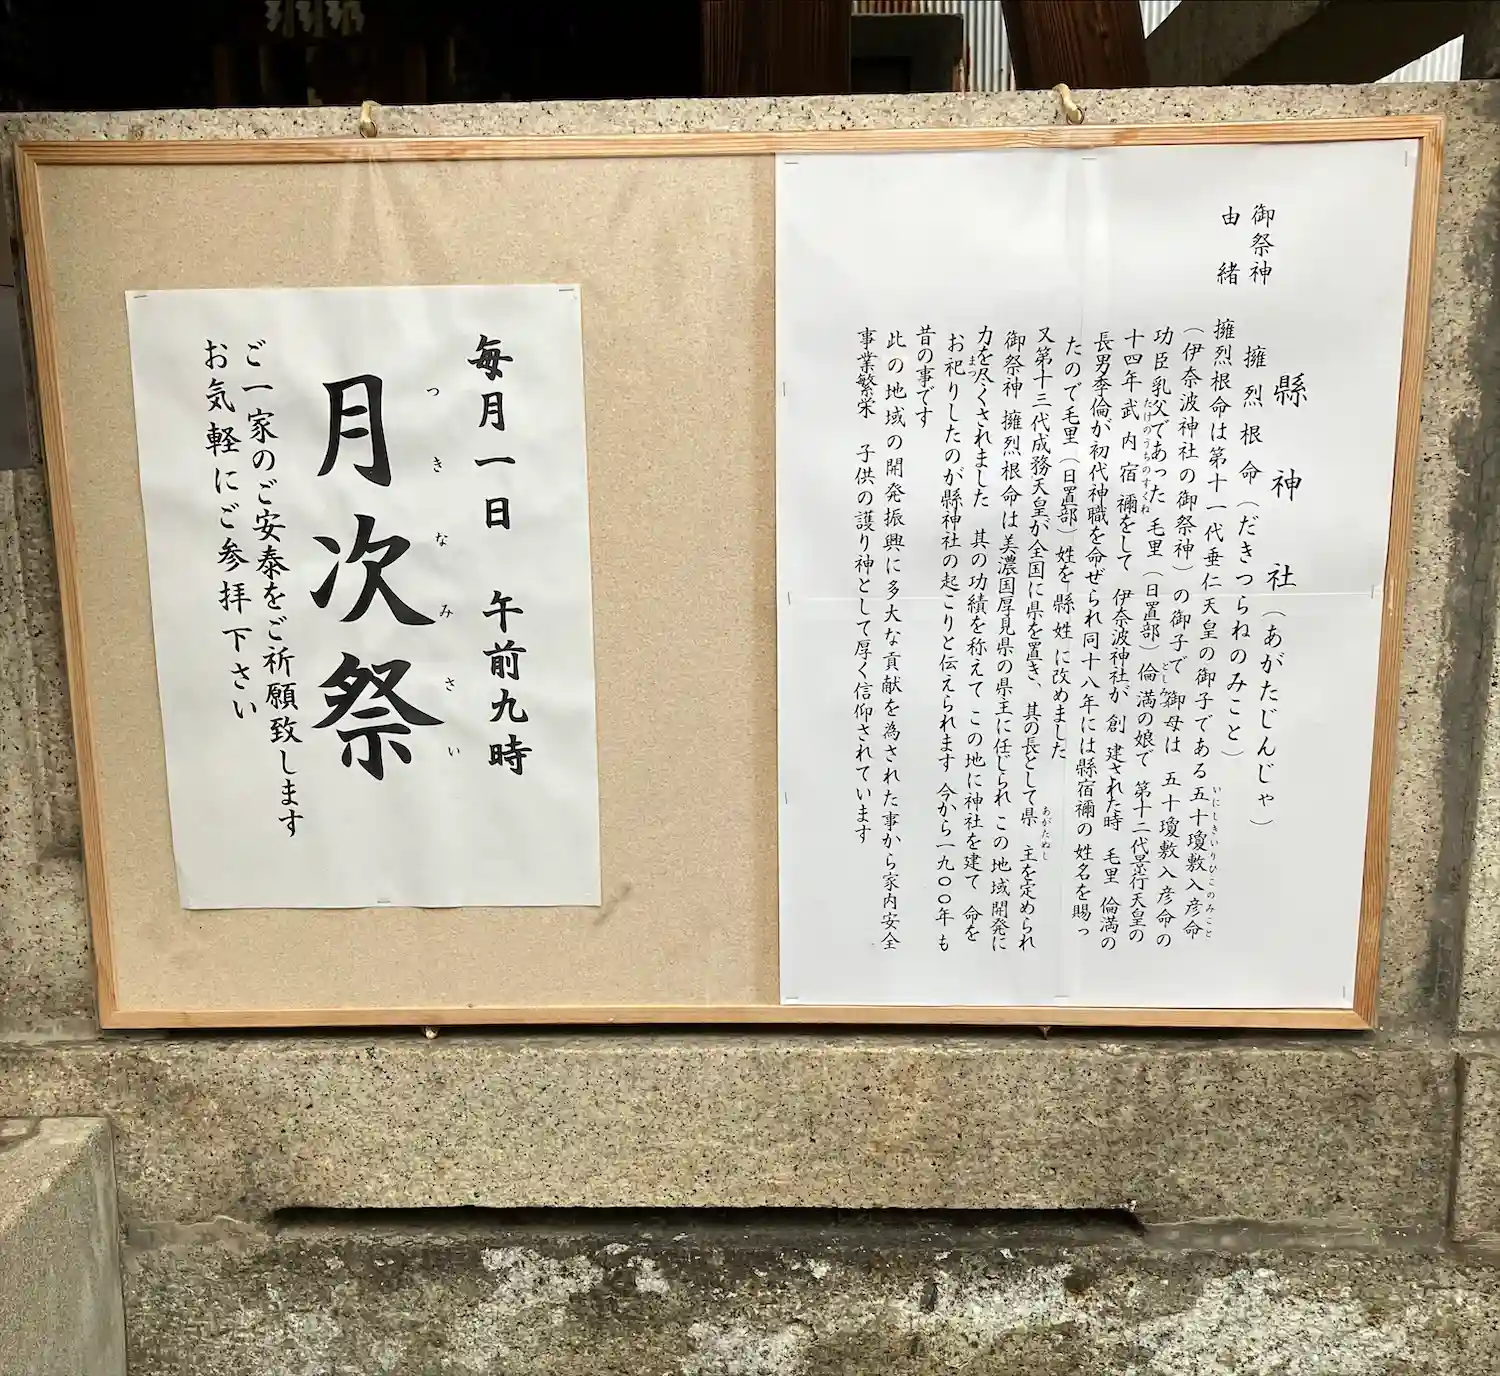 縣神社(あがたじんじゃ)
御祭神 擁烈根命(だきつらねのみこと)
由緒 擁烈根命は第十一代垂仁天皇の御子である五十瓊敷入彦命
いにしきいりひこのみこと
(伊奈波神社の御祭神)の御子で 御母は 五十瓊敷入彦命の
功臣乳父であった 毛里(日置部)倫満の娘で 第十二代景行天皇の
十四年 武内宿禰をして 伊奈波神社が創建された時 毛里倫満の
たけのうちのすくね
長男季倫が初代神職を命ぜられ同十八年には縣宿禰の姓名を賜っ
たので毛里(日置部)姓を縣姓に改めました
又第十三代成務天皇が全国に県を置き、其の長として県主を定められ
あがたぬし
御祭神 擁烈根命は美濃国厚見県の県主に任じられ この地域開発に
力を尽くされました 其の功績を称えて この地に神社を建て 命を
まつ
お祀りしたのが縣神社の起こりと伝えられます 今から一九〇〇年も
昔の事です
此の地域の開発振興に多大な貢献を為された事から家内安全
事業繁栄 子供の護り神として厚く信仰されています
毎月一日 午前九時
つきなみさい
月次祭
ご一家のご安泰をご祈願致します
お気軽にご参拝下さい